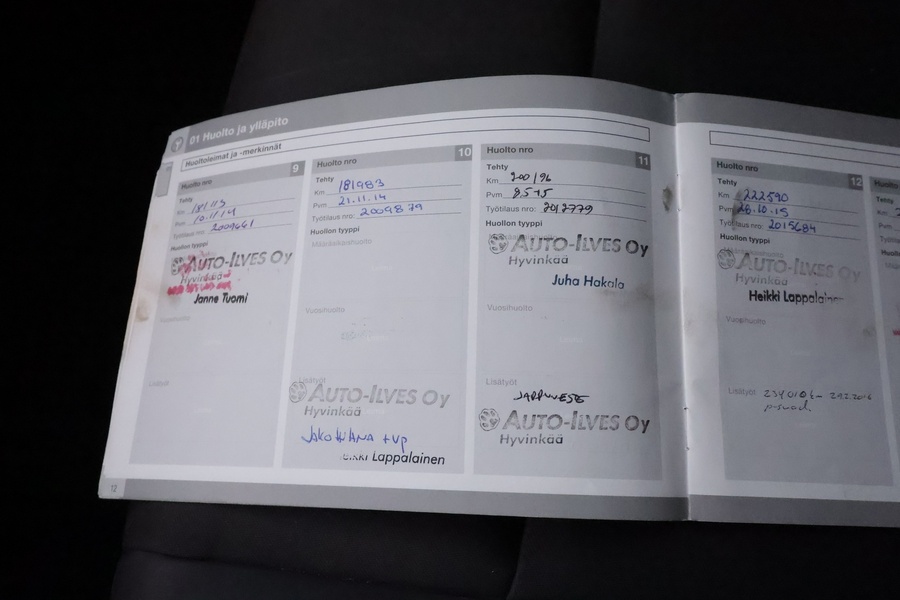 01 Huolto ja ylläpito
Huoltoleimat ja -merkinnät
Huolto nro 9
Tehty
Km
Pvm 10.11.14
Työtilaus nro: 2009661
Huollon tyyppi
AUTO-ILVES Oy
Hyvinkää
Janne Tuomi
Vuosihuolto
Lisätyöt
Huolto nro 10
Tehty
Km 181983
Pvm 21.11.14
Työtilaus nro: 2009879
Huollon tyyppi
Määräaikaishuolto
Vuosihuolto
Lisätyöt
AUTO-ILVES Oy
Hyvinkää
JakoHihna +vp
Lappalainen
Huolto nro 11
Tehty
Km 200196
Pvm 8.5.15
Työtilaus nro: 2012779
Huollon tyyppi
AUTO-ILVES Oy
Hyvinkää
Juha Hakala
Vuosihuolto
Lisätyöt
JARRUNESTE
AUTO-ILVES Oy
Hyvinkää
12
Huolto nro 12
Tehty
Km 222590
Pvm 28.10.15
Työtilaus nro: 2015684
Huollon tyyppi
AUTO-ILVES Oy
Hyvinkää
Heikki Lappalainen
Vuosihuolto
Lisätyöt